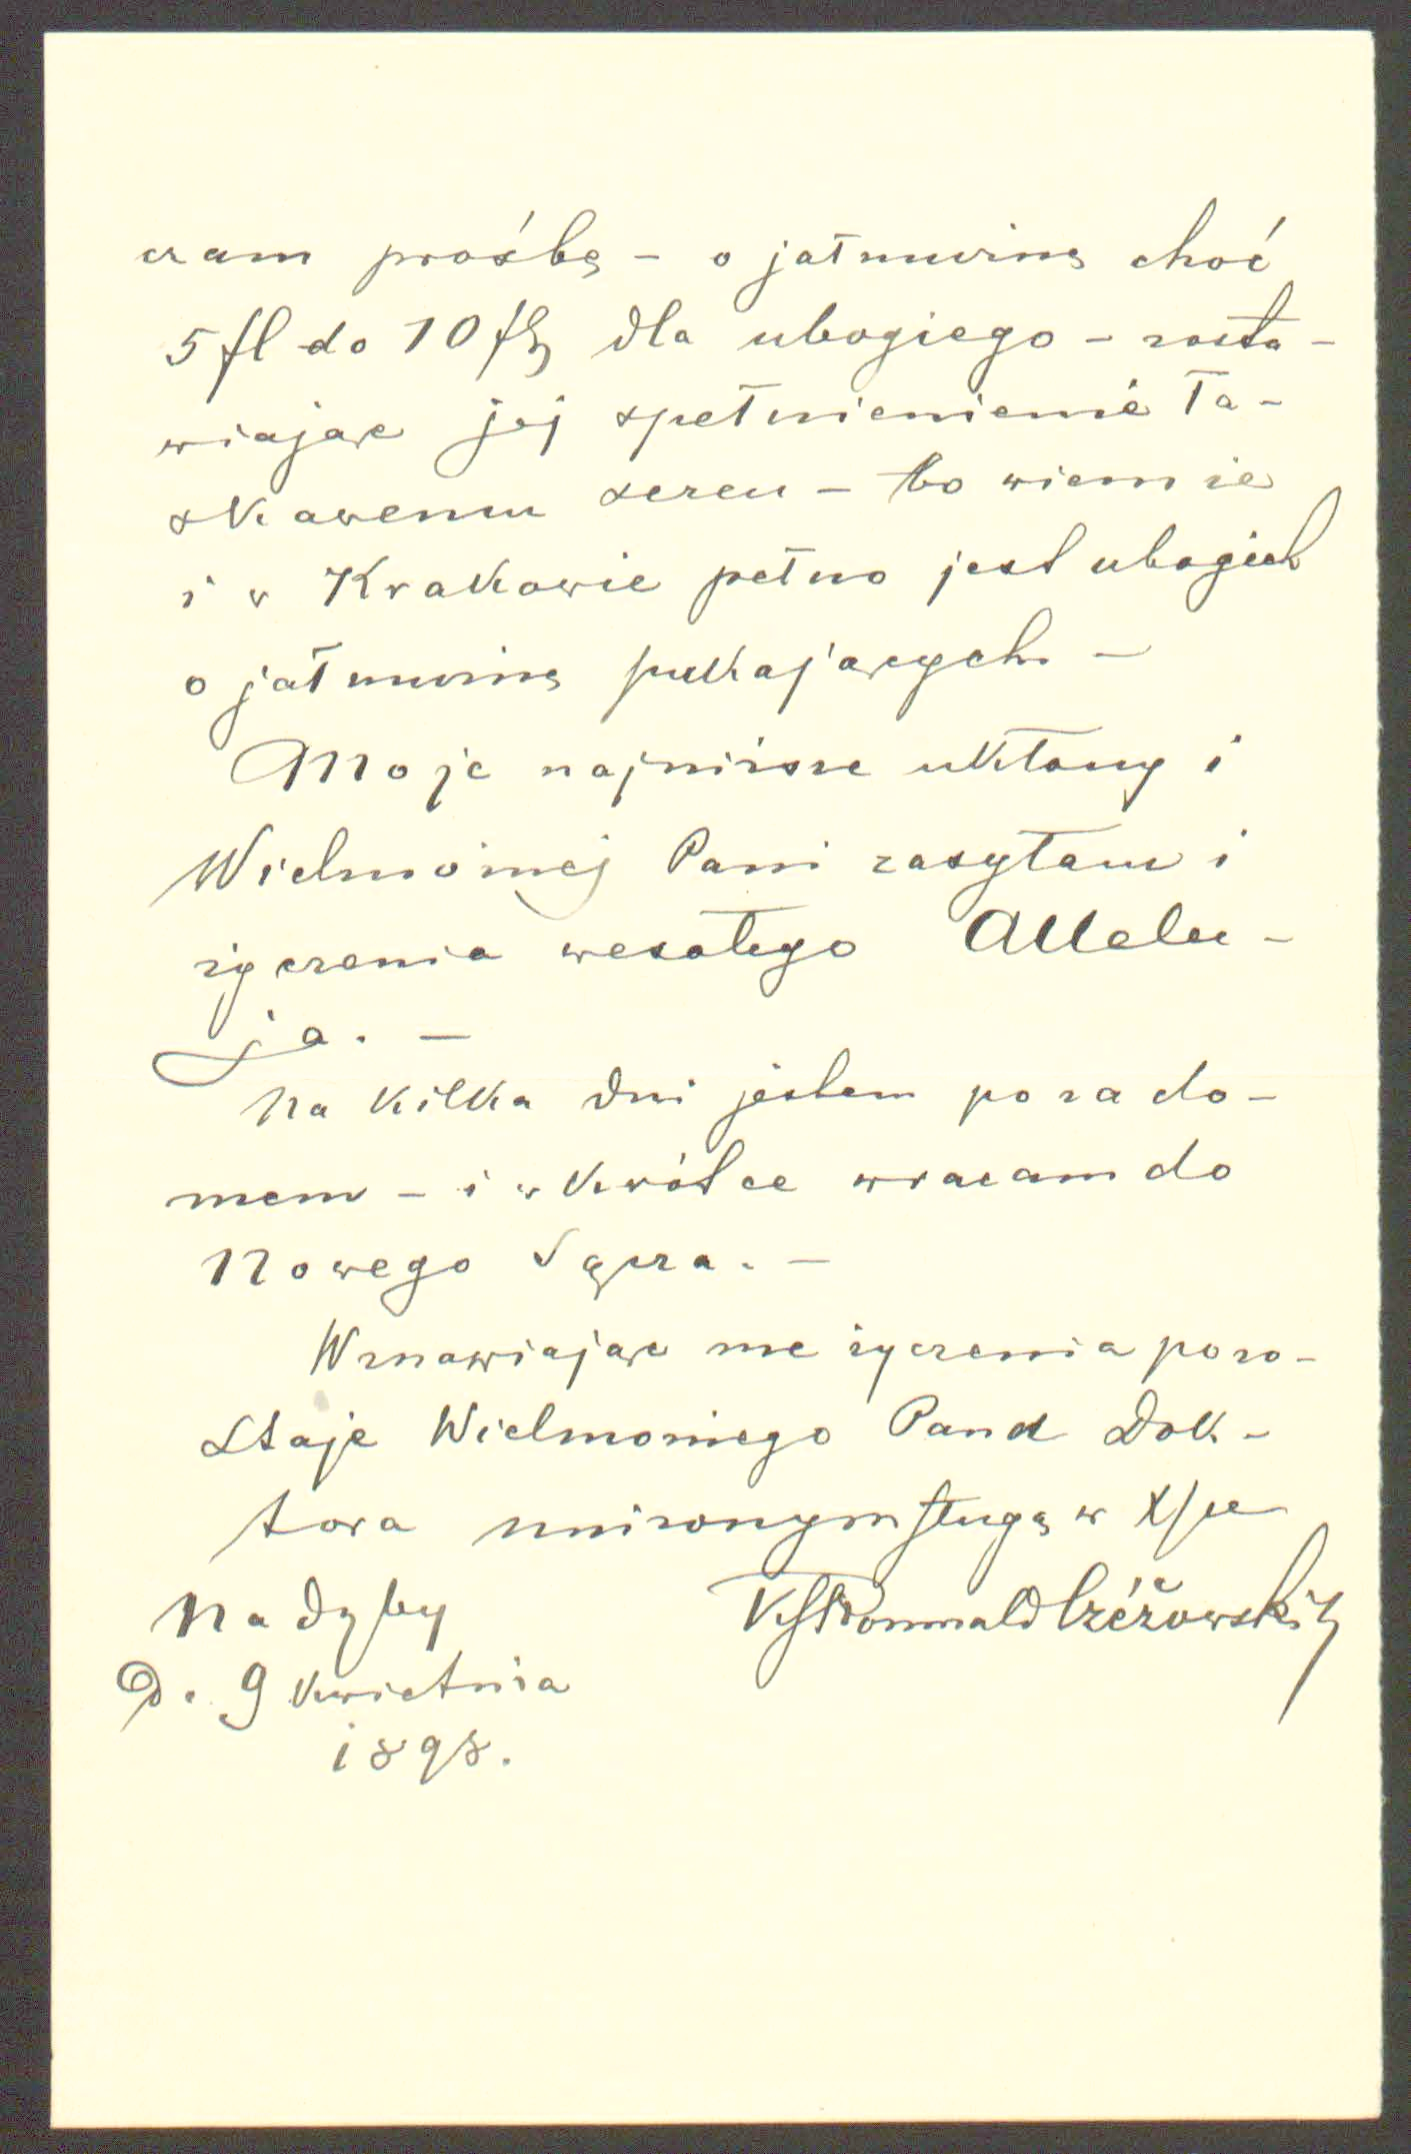 czam prośbę – o jałmużnę choć
5 fl do 10 fl dla ubogiego – zosta-
wiając jej spełnieniemie ła-
skawemu sercu – bo wiem że
i w Krakowie pełno jest ubogich
o jałmużnę pukających –
Moje najniższe ukłony i
Wielmożnej Pani zasyłam i
życzenia wesołego Allelu-
ja. –
Na kilka dni jestem poza do-
mem – i wkrótce wracam do
Nowego Sącza. –
Wznawiając me życzenia pozo-
staję Wielmożnego Pana Dok-
tora uniżonym sługą w Xpe
Nadyby
D. 9 kwietnia
1898.